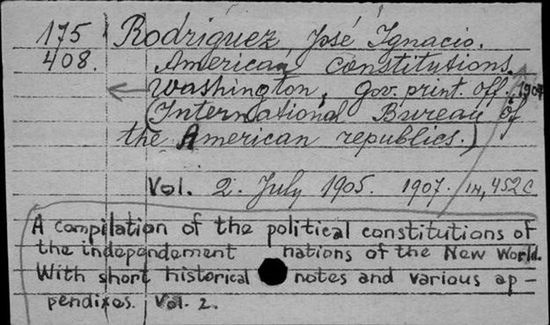 175 Rodriguez, José Ignacio.
408. American constitutions.
Washington, Gov. print. off.,
(International Bureau of
the American republics.)
Vol. 2. July 1905. 1907. 452 c
A compilation of the political constitutions of
the independement nations of the New World.
With short historical notes and various ap-
pendixes. Vol. 2.